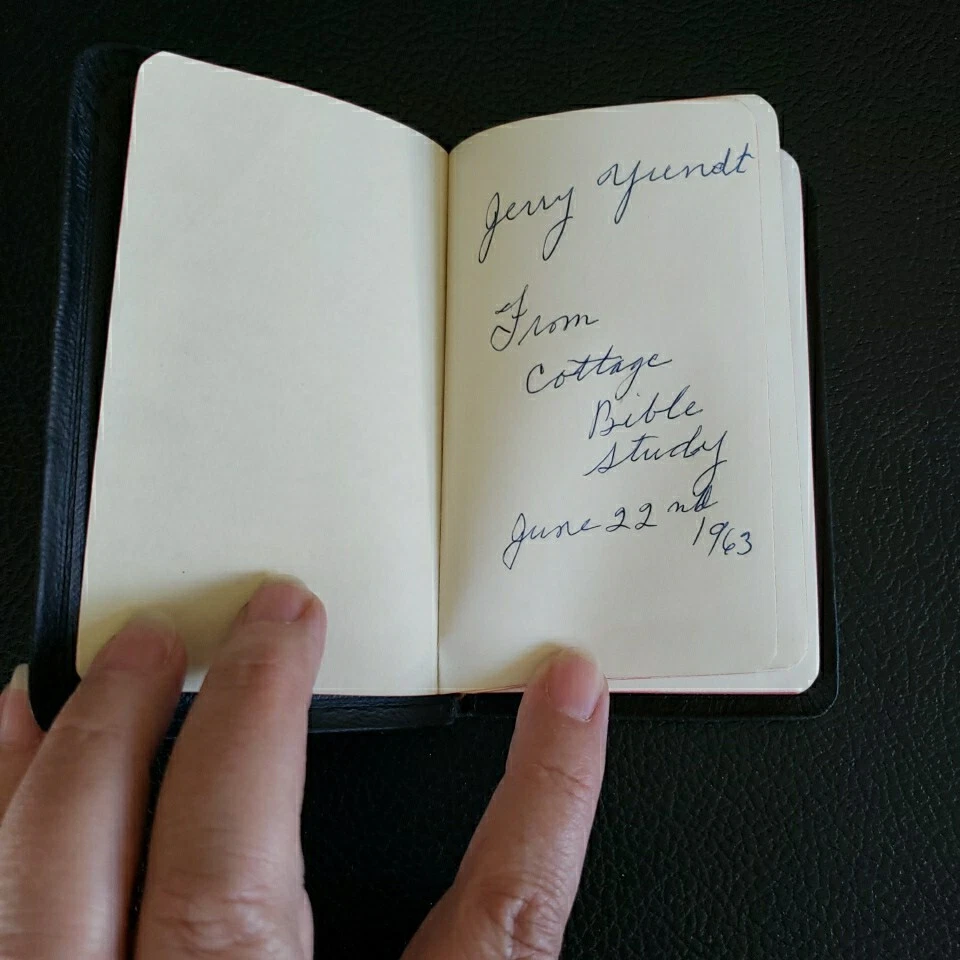 Jerry Yundt
From
Cottage
Bible
Study
June 22 nd
1963